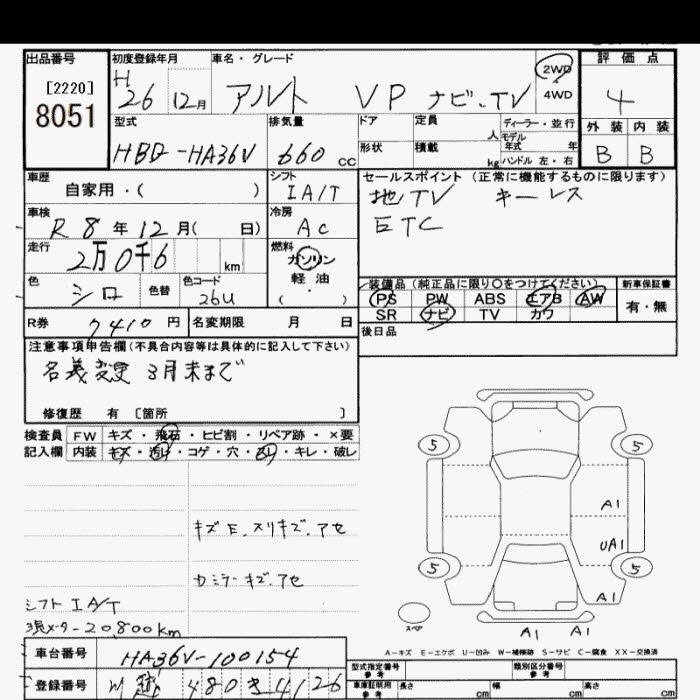 出品番号
[2220]
8051
初度登録年月
H 26 12月
車名・グレード
アルト VP ナビ、TV
2WD
4WD
評価点
4
外装 内装
B B
型式
HBD-HA36V
排気量
660 cc
ドア
形状
定員 人
積載 kg
ディーラー・並行
モデル年式 年
ハンドル 左・右
車歴
自家用・( )
シフト
IA/T
セールスポイント (正常に機能するものに限ります)
地TV キーレス
ETC
車検
R 8年12月( 日)
冷房
AC
走行
2万0千6 km
燃料
ガソリン
軽油
( ・ )
色
シロ
色替
色コード
26U
装備品(純正品に限り○をつけてください)
PS PW ABS エアB AW
SR ナビ TV カワ
新車保証書
有・無
R券 7410 円
名変期限 月 日
後日品
注意事項申告欄(不具合内容等は具体的に記入して下さい)
名義変更 3月末まで
修復歴 有 [箇所 ]
検査員 FW キズ・飛石・ヒビ割・リペア跡・×要
記入欄 内装 キズ・コゲ・穴・キレ・破し
5 5
キズE、スリキズ、アセ
A1
UA1
5 5
キズ、アセ
A1
シフト IA/T
現メーター20800km
スペア
A1 A1
A-キズ E-エクボ U-凹み W-補修跡 S-サビ C-腐食 XX-交換済
車台番号 HA36V-100154
登録番号 川越 480 き 4126
型式指定番号 参考
類別区分番号 参考
車庫証明用 参考 長さ cm 幅 cm 高さ cm